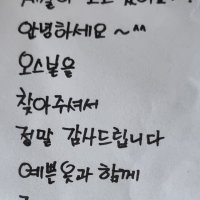 안녕하세요~^^
오스본을
찾아주셔서
정말 감사드립니다
예쁜옷과 함께